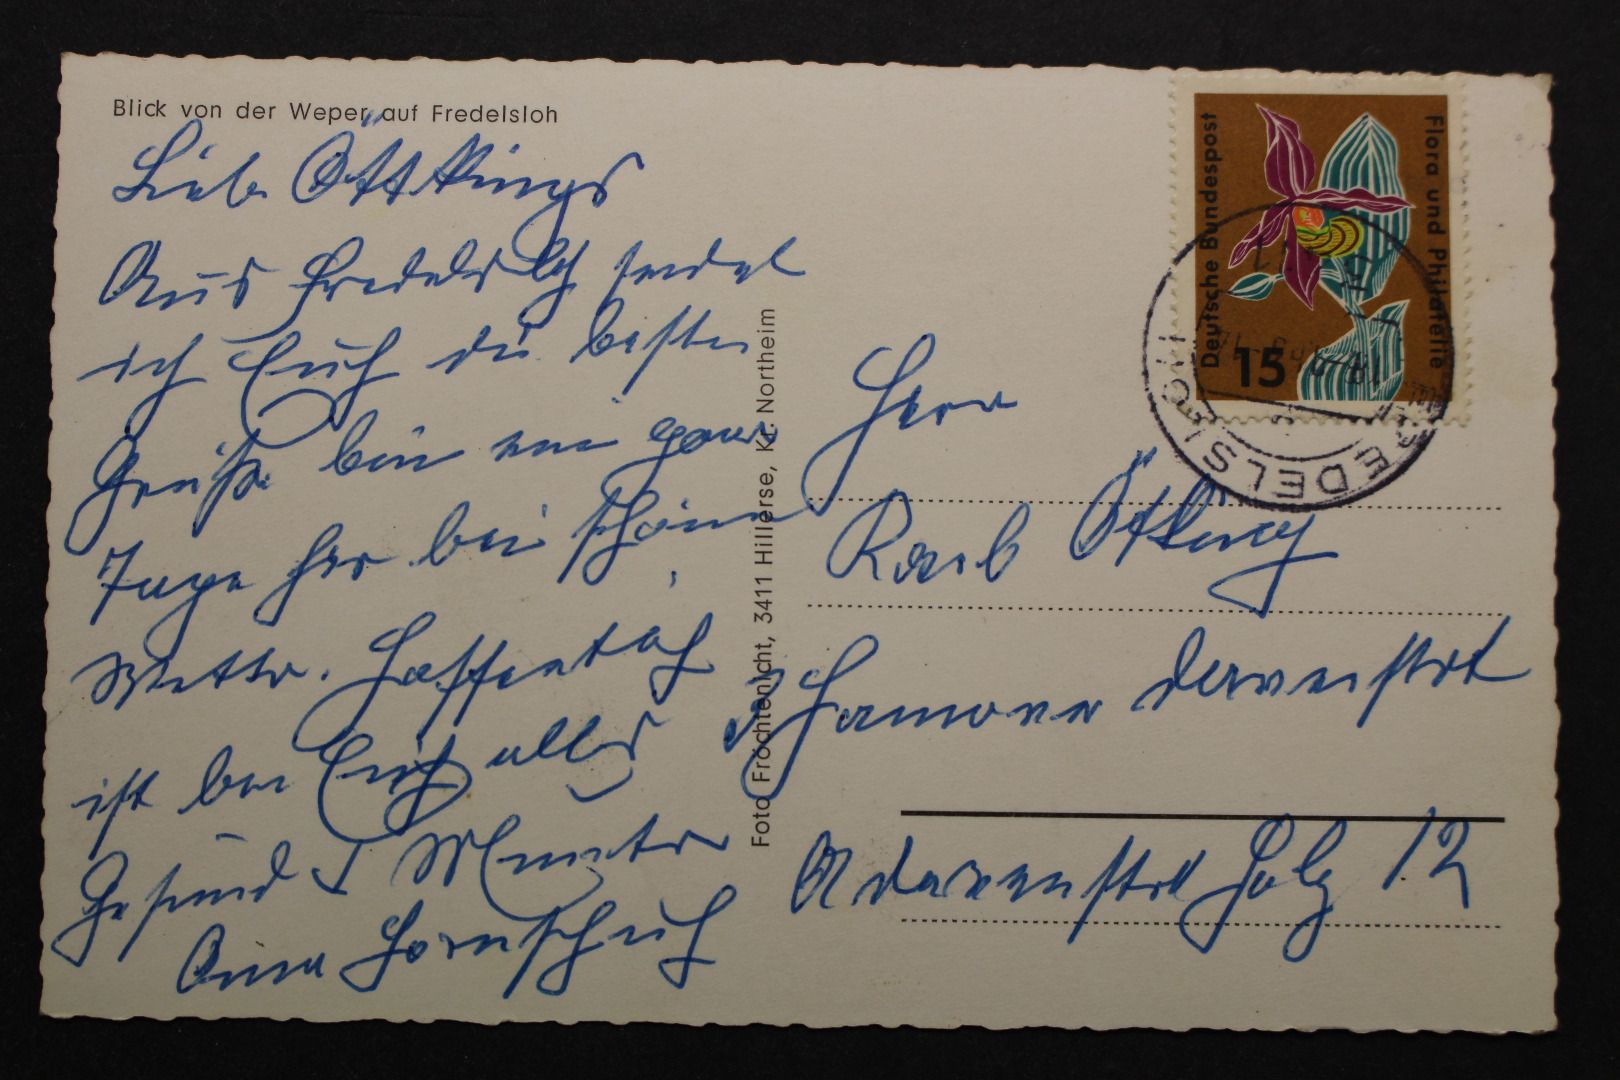 Blick von der Weper auf Fredelsloh
Lieb. Öttkings
Aus Fredelsloh sendet
ich Euch die besten
Grüße. bin ein paar
Tage hir bei schönen
Wetter. Hoffentlich
ist bei Euch alles
Gesund u Munter
Anna Hornschuh
Foto Fröchtenicht, 3411 Hillerse, Kr. Northeim
Deutsche Bundespost
Flora und Philatelie
15
FREDELSLOH
Herr
Karl Ötking
Hannover
Holz 12